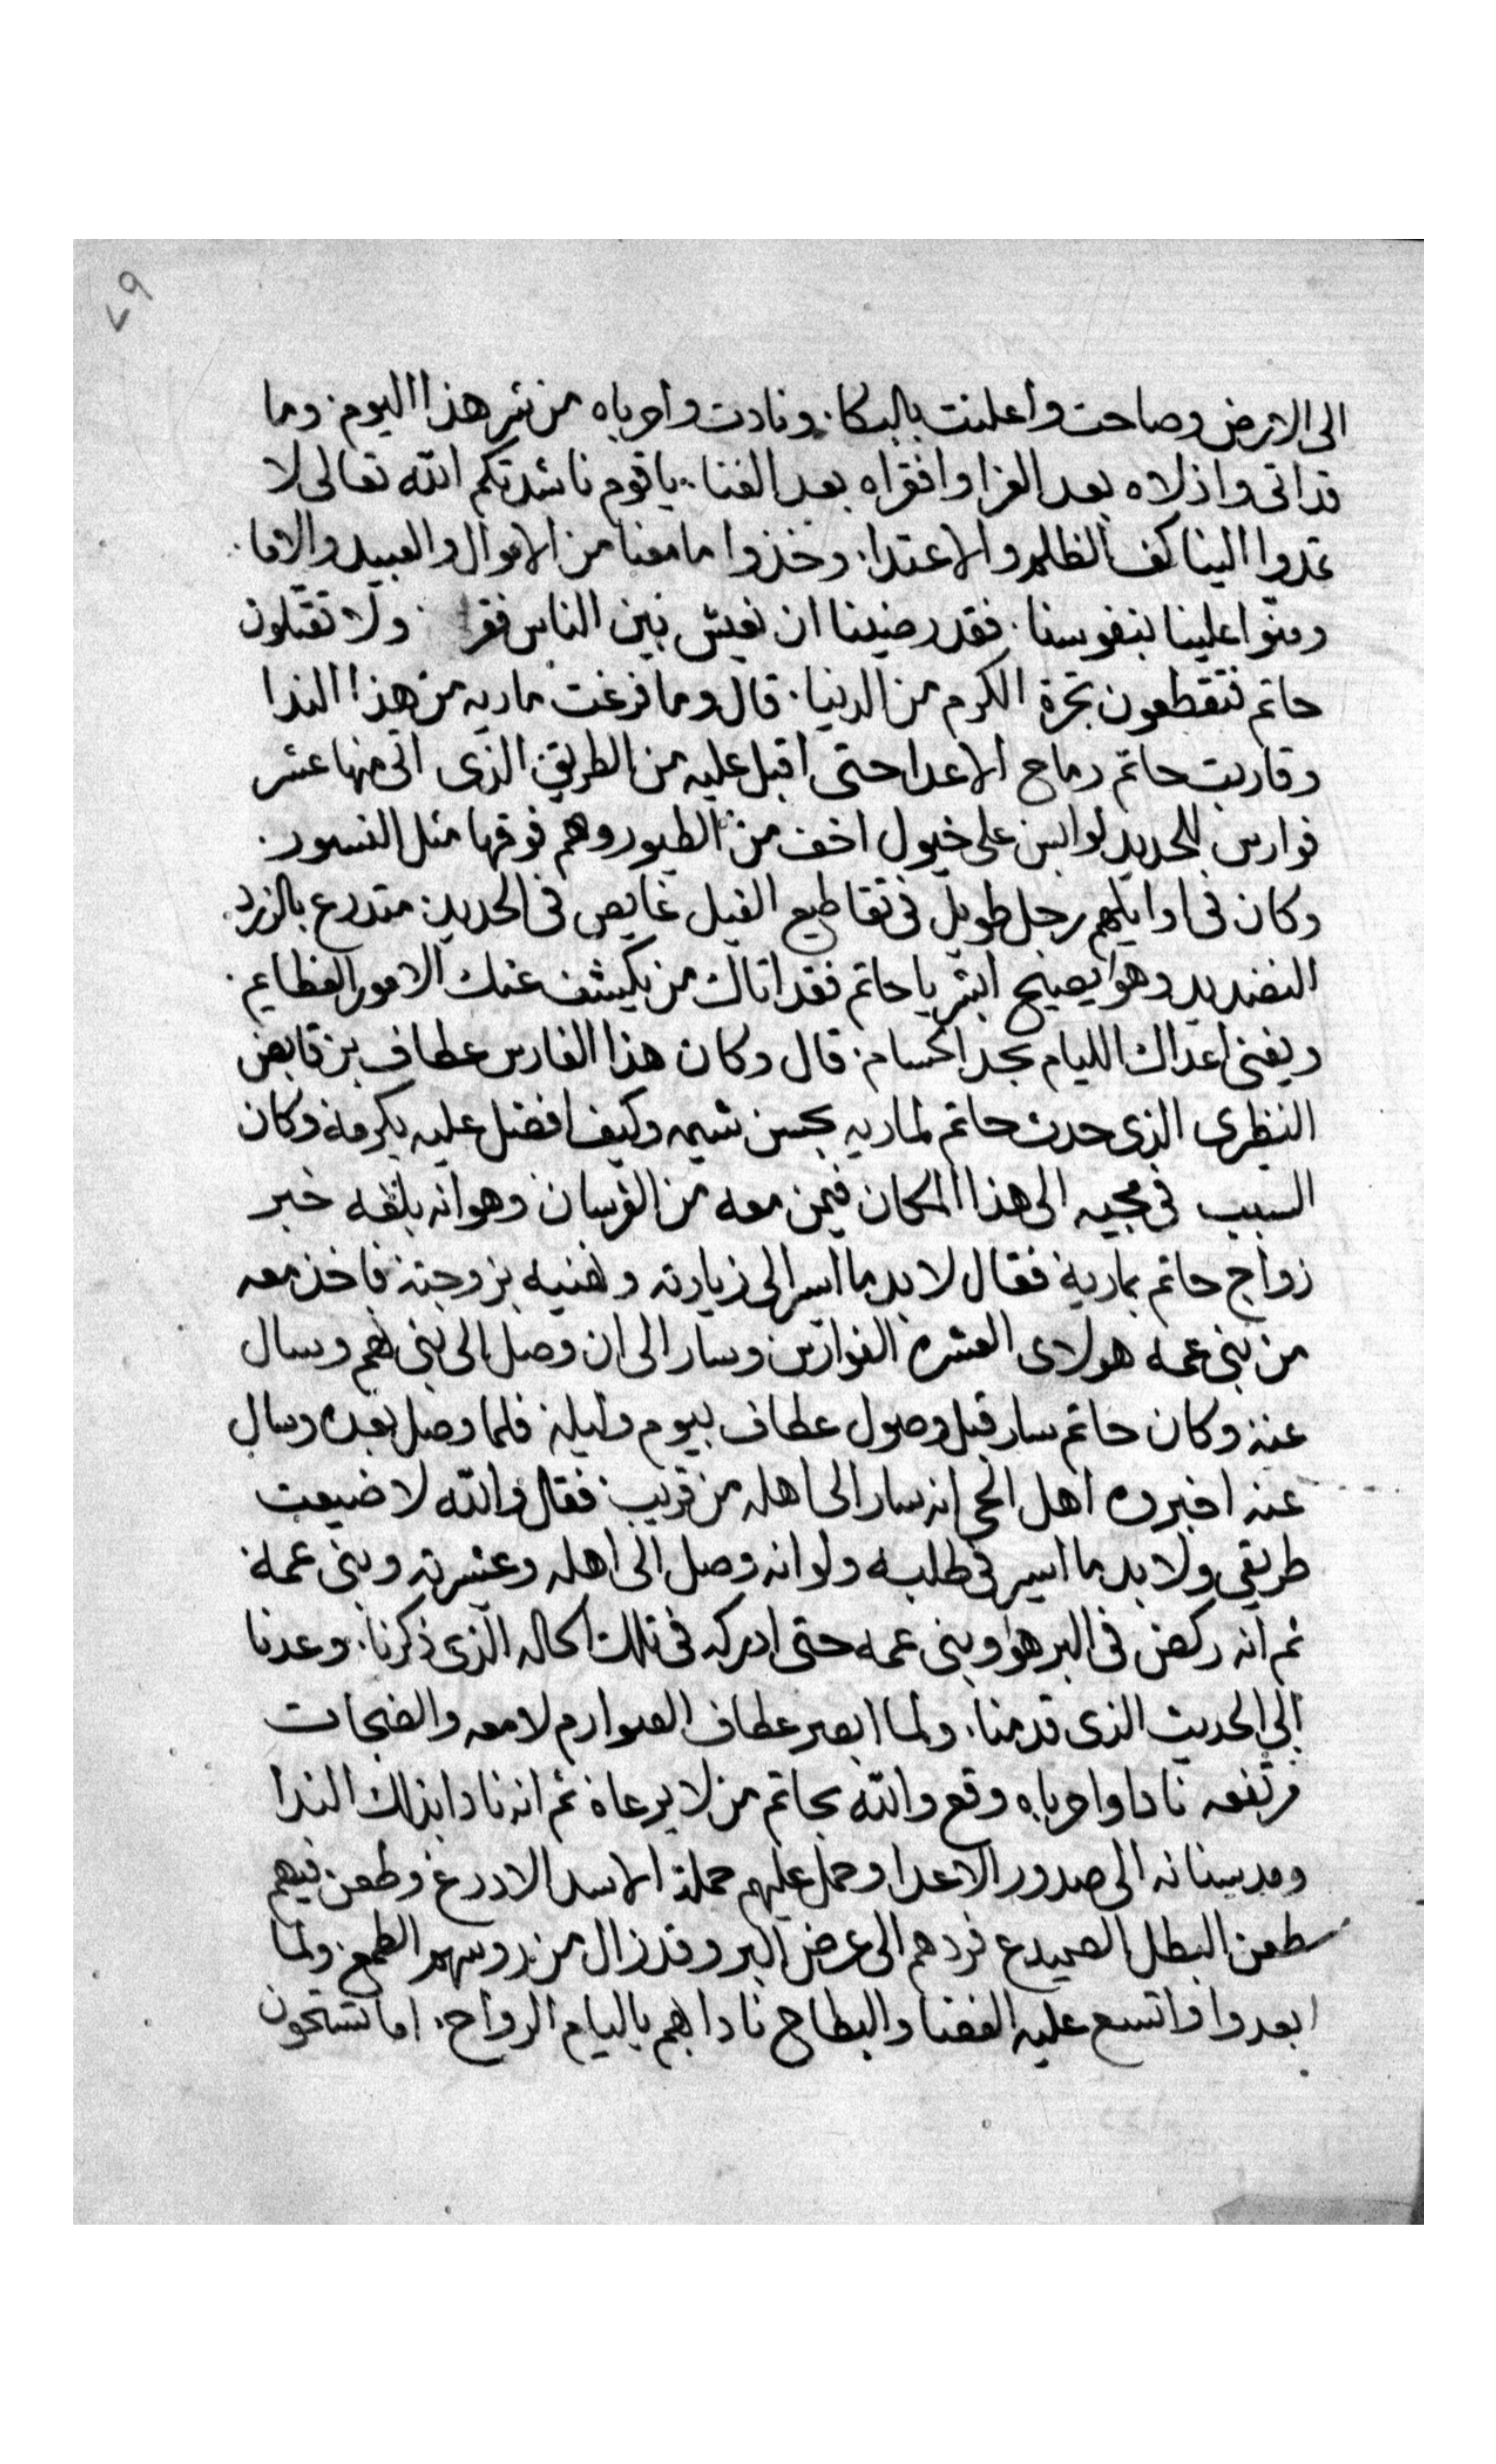 ٧٩
الى الارض وصاحت واعلنت بالبكا. ونادت واحرباه من شر هذا اليوم. وما
قد اتى واذلاه بعد العز وافقراه بعد الغنا. يا قوم ناشدتكم الله تعالى لا
تمدوا الينا كف الظلم والاعتدا. وخذوا ما معنا من الاموال والعبيد والاما.
ومنوا علينا بنفوسنا. فقد رضينا ان نعيش بين الناس فقرا ولا تقتلون
حاتم فتقطعون شجرة الكرم من الدنيا. قال وما فرغت ماريه من هذا الندا
وقاربت حاتم رماح الاعدا حتى اقبل عليه من الطريق الذى اتى منها عشر
فوارس للحديد لوابس على خيول اخف من الطيور وهم فوقها مثل النسور.
وكان فى اوايلهم رجل طويل فى تقاطيع الفيل غايص فى الحديد متدرع بالزرد
النضيد وهو يصيح ابشر يا حاتم فقد اتاك من يكشف عنك الامور العظايم.
ويفنى اعداك الليام بحد الحسام. قال وكان هذا الفارس عطاف بن قابض
النظرى الذى حدث حاتم لماريه بحسن شيمه وكيف افضل عليه بكرمه وكان
السبب فى مجيه الى هذا المكان فيمن معه من الفرسان وهو انه بلغه خبر
زواج حاتم بمارية فقال لا بد ما اسير الى زيارته واهنيه بزوجته فاخذ معه
من بنى عمه هولاى العشره الفوارس وسار الى ان وصل الى بنى لهم وسال
عنه وكان حاتم سار قبل وصول عطاف بيوم وليله فلما وصل بعده وسال
عنه اخبروه اهل الحى انه سار الى اهله من قريب فقال والله لا ضيعت
طريقى ولا بد ما اسير فى طلبه ولو انه وصل الى اهله وعشيرته وبنى عمه
ثم انه ركض فى البر هو وبنى عمه حتى ادركه فى تلك الحاله الذى ذكرنا. وعدنا
الى الحديث الذى قدمنا. ولما ابصر عطاف الصوارم لامعه والضجات
مرتفعه نادا واحرباه وقع والله بحاتم من لا يرعاه ثم انه نادا بذلك الندا
ومد سنانه الى صدور الاعدا وحمل عليهم حملة الاسد الادرع وطعن فيهم
طعن البطل الصميدع فردهم الى عرض البر وقد زال من روسهم الطمع ولما
ابعدوا واتسع عليه الفضا والبطاح نادا بهم يا ليام الرواح. اما تستحون